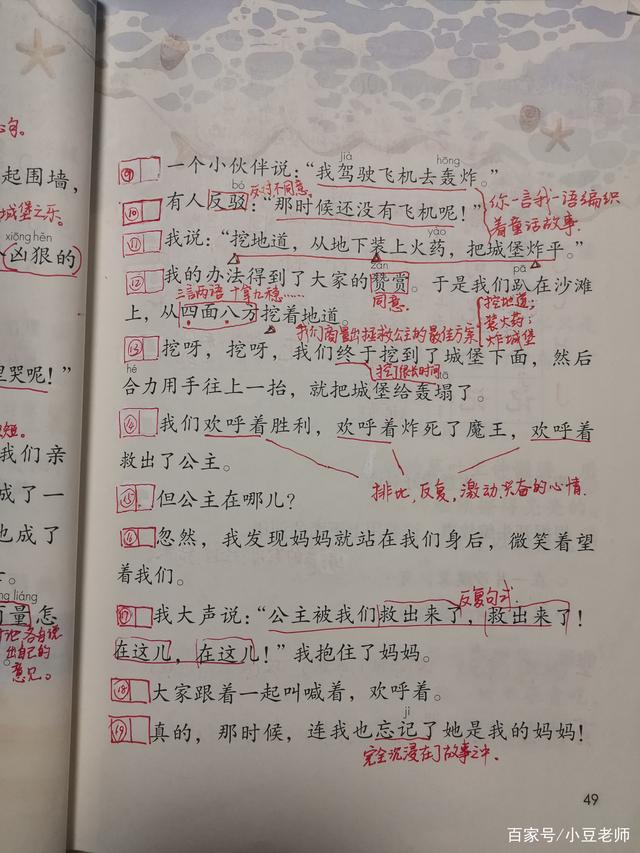 起围墙，
城堡之乐。
xiōng hěn
凶狠的
哭呢！”
我们亲
成了一
也成了
ng liáng
量怎
各自说
出自己的
意见。
jià hōng
⑨ 一个小伙伴说：“我驾驶飞机去轰炸。”
bó 反对不同意。
⑩ 有人反驳：“那时候还没有飞机呢！”
你一言我一语编织
着童话故事.
yào
⑪ 我说：“挖地道，从地下装上火药，把城堡炸平。”
zàn pā
⑫ 我的办法得到了大家的赞赏。于是我们趴在沙滩
三言两语 十拿九稳…… 同意.
上，从四面八方挖着地道。
挖地道；
装火药；
炸城堡
我们商量出拯救公主的最佳方案
⑬ 挖呀，挖呀，我们终于挖到了城堡下面，然后
hé 挖了很长时间.
合力用手往上一抬，就把城堡给轰塌了。
⑭ 我们欢呼着胜利，欢呼着炸死了魔王，欢呼着
救出了公主。
排比，反复，激动,兴奋的心情.
⑮ 但公主在哪儿？
忽然，我发现妈妈就站在我们身后，微笑着望
着我们。
反复句式.
⑰ 我大声说：“公主被我们救出来了，救出来了！
在这儿，在这儿！”我抱住了妈妈。
⑱ 大家跟着一起叫喊着，欢呼着。
jì
⑲ 真的，那时候，连我也忘记了她是我的妈妈！
完全沉浸在了故事之中.
49
百家号/小豆老师